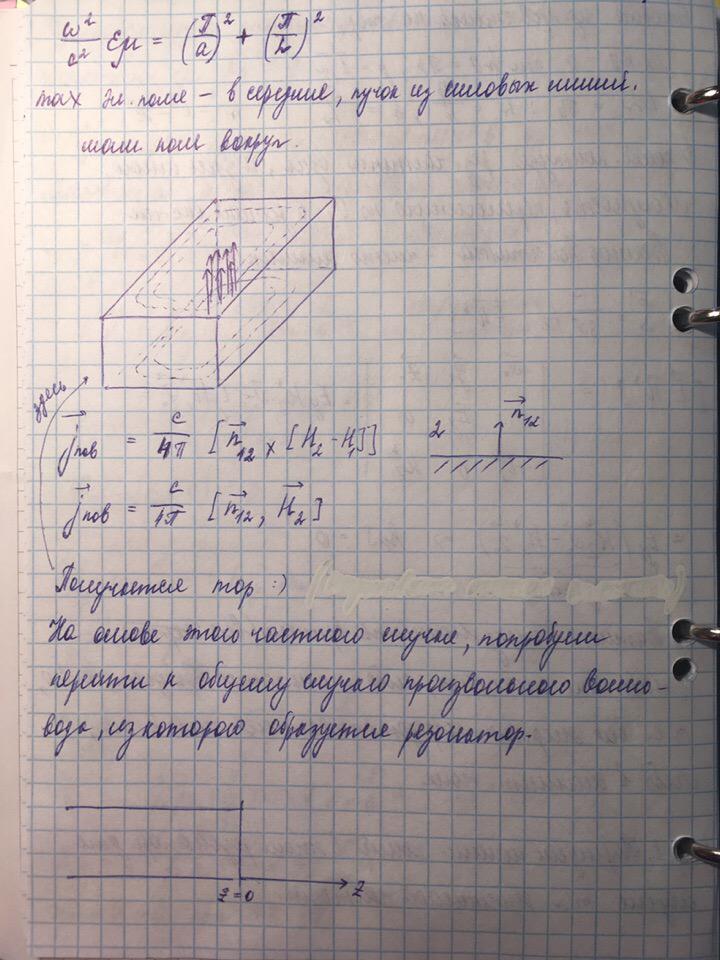 ω²/c² εμ = (π/a)² + (π/L)²
max эл. поле – в середине, пучок из силовых линий.
магн поле вокруг.
здесь
j⃗пов = c/4π [n⃗₁₂ × [H₂ - H₁]]
2 n⃗₁₂
j⃗пов = c/4π [n⃗₁₂, H⃗₂]
Получается тор :)
На основе этого частного случая, попробуем
перейти к общему случаю произвольного волно-
вода, из которого образуется резонатор.
z=0 z